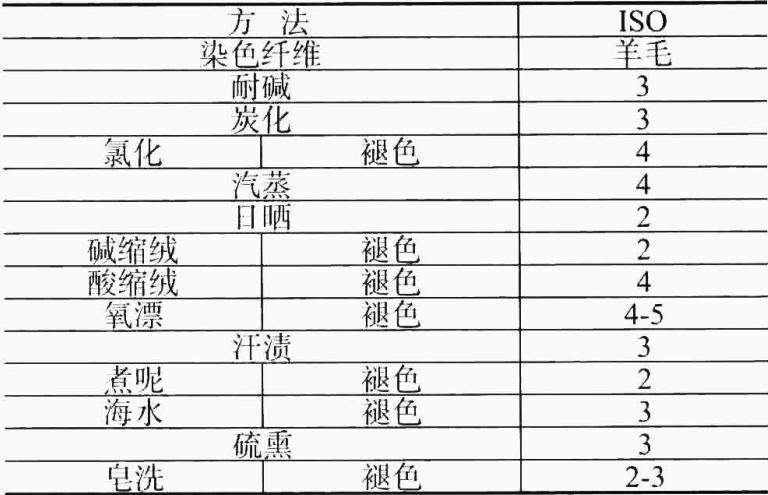 方 法 ISO
染色纤维 羊毛
耐碱 3
炭化 3
氯化 褪色 4
汽蒸 4
日晒 2
碱缩绒 褪色 2
酸缩绒 褪色 4
氧漂 褪色 4-5
汗渍 3
煮呢 褪色 2
海水 褪色 3
硫熏 3
皂洗 褪色 2-3